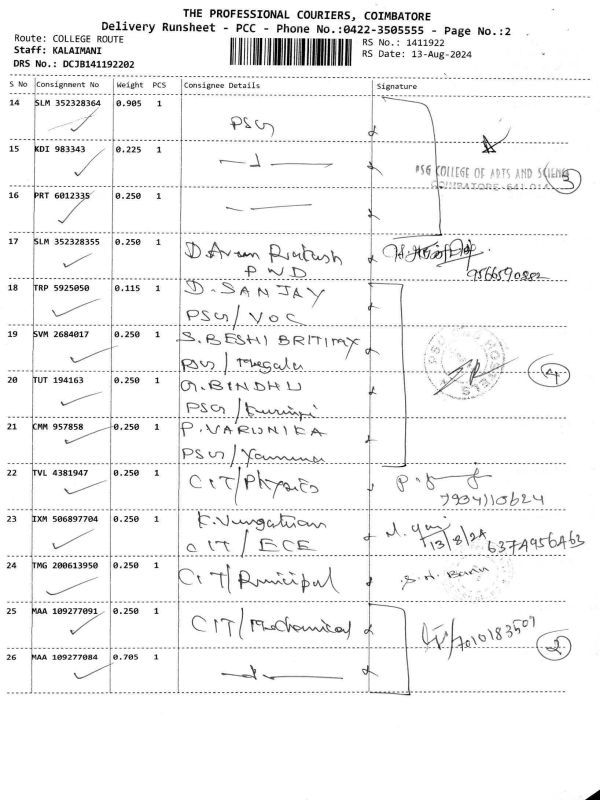 THE PROFESSIONAL COURIERS, COIMBATORE
Delivery Runsheet - PCC - Phone No.:0422-3505555 - Page No.:2
Route: COLLEGE ROUTE
RS No.: 1411922
Staff: KALAIMANI
RS Date: 13-Aug-2024
DRS No.: DCJB141192202
S No Consignment No Weight PCS Consignee Details Signature
14 SLM 352328364 0.905 1
PSG
15 KDI 983343 0.225 1
PSG COLLEGE OF ARTS AND SCIENCE
COIMBATORE 641 014
3
16 PRT 6012335 0.250 1
17 SLM 352328355 0.250 1 D. Arun Prakash
PWD
9566590882
18 TRP 5925050 0.115 1 D. SANJAY
PSG/VOC
19 SVM 2684017 0.250 1 S. BESHI BRITIMY
PSG/Megala
20 TUT 194163 0.250 1 G. BINDHU
PSG/Kurinji
4
21 CMM 957858 0.250 1 P. VARUNIKA
PSG/Yamuna
22 TVL 4381947 0.250 1 CIT/Physics
7904110624
23 IXM 506897704 0.250 1
CIT/ECE
13/8/24
637A956A63
24 TMG 200613950 0.250 1
CIT/Principal
25 MAA 109277091 0.250 1
CIT/Mechanical
7010183509
2
26 MAA 109277084 0.705 1